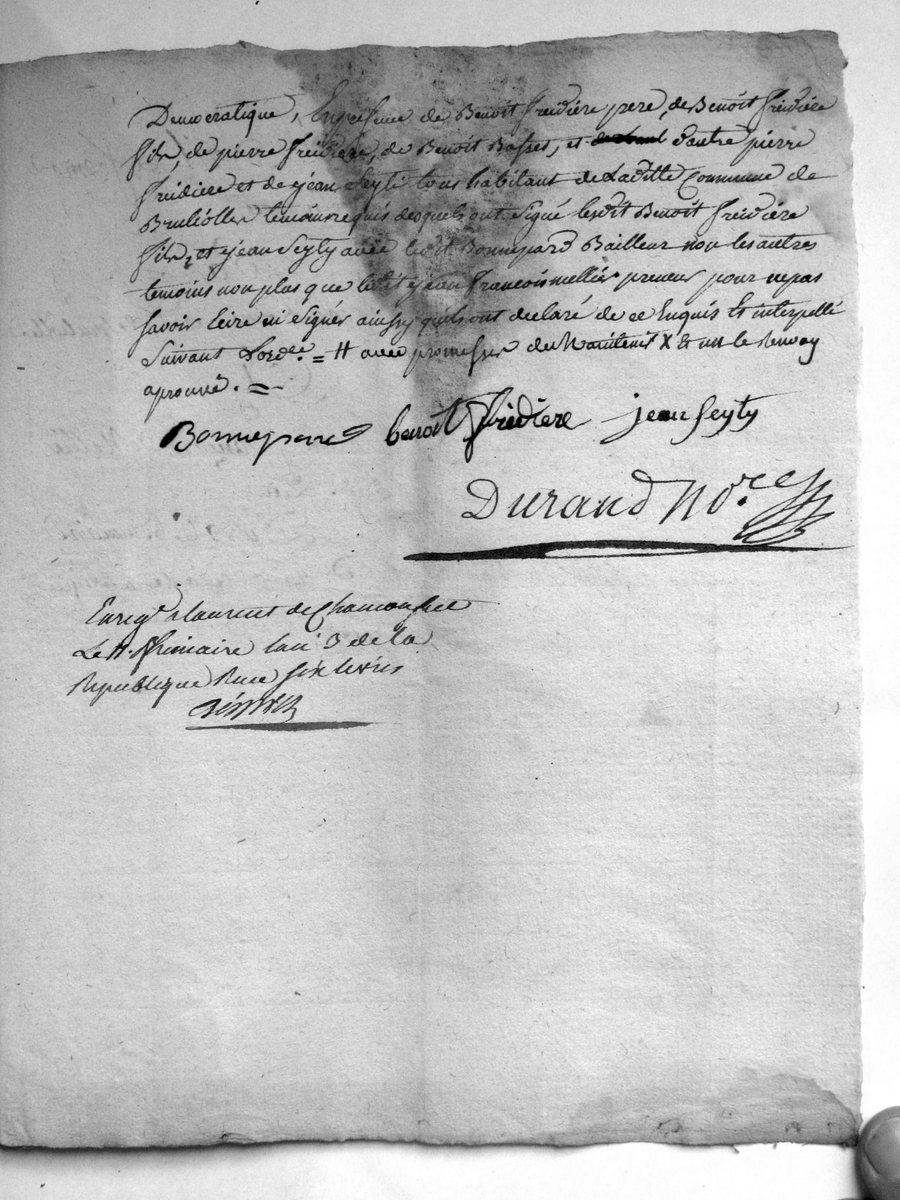 Democratique, En presence de Benoit freidiére pere, de Benoit freidiére
fils, de pierre freidiere, de Benoit Basses, et d'autre pierre
freidiere et de jean Seyty tous habitant de Laditte Commune de
Brulliolles temoins requis desquels ont Signé lesdit Benoit freidiére
fils, et jean Seyty avec ledit Bonnepard Bailleur non les autres
temoins non plus que ledit jean francois mellier preneur pour ne pas
Savoir Ecire ni Signer ainsy qu'ils ont declaré de ce Enquis Et interpellé
Suivant l'ord.ce = # avec promesse de Maintenir X Et un le Renvoy
aprouvé. =
Bonnepard benoit fridiere jean Seyty
Durand No.re
Enreg.é a laurent de Chamousset
Le 11. frimaire lan 3 de la
Republique Reçu six livres